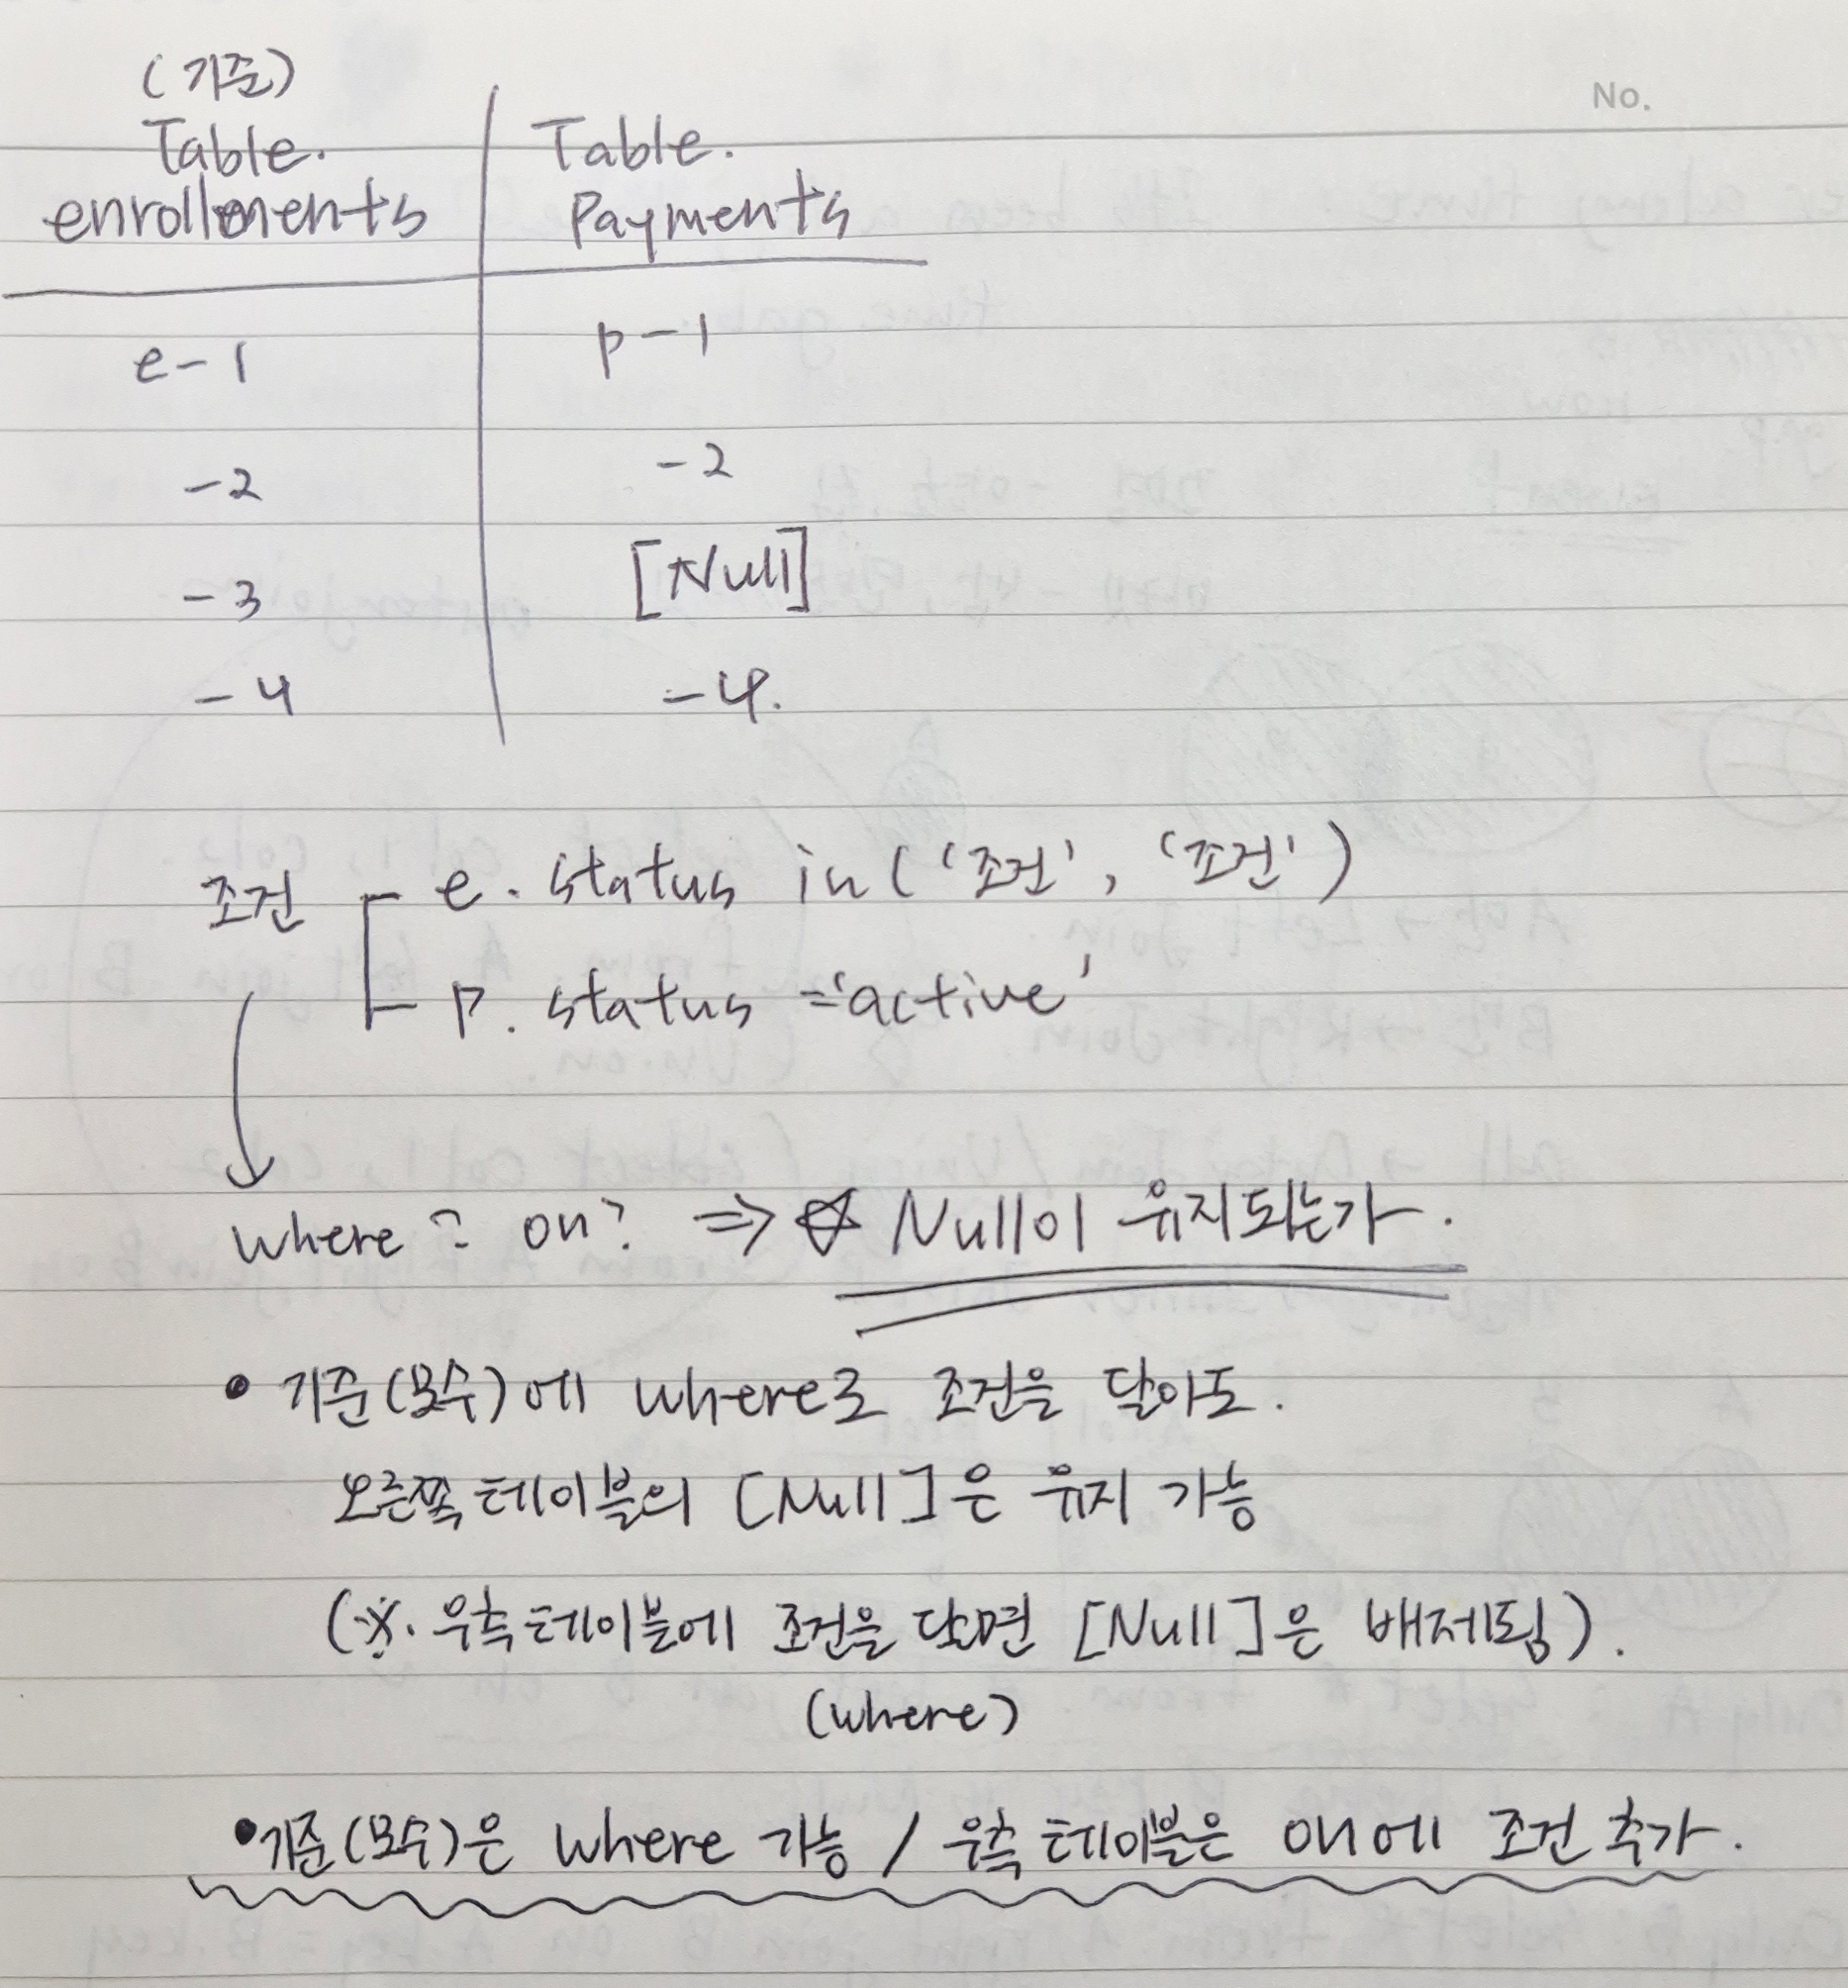 No.
(기준)
Table.
enrollments
Table.
Payments
e-1
p-1
-2
-2
-3
[Null]
-4
-4.
조건
e. status in ('조건', '조건')
p. status ='active'
where? on? ⇒ ☆ Null이 유지되는가.
• 기준(모수)에 where로 조건을 달아도.
오른쪽 테이블의 [Null]은 유지 가능
(※. 우측 테이블에 조건을 달면 [Null]은 배제됨).
(where)
• 기준(모수)은 where 가능 / 우측 테이블은 on에 조건 추가.